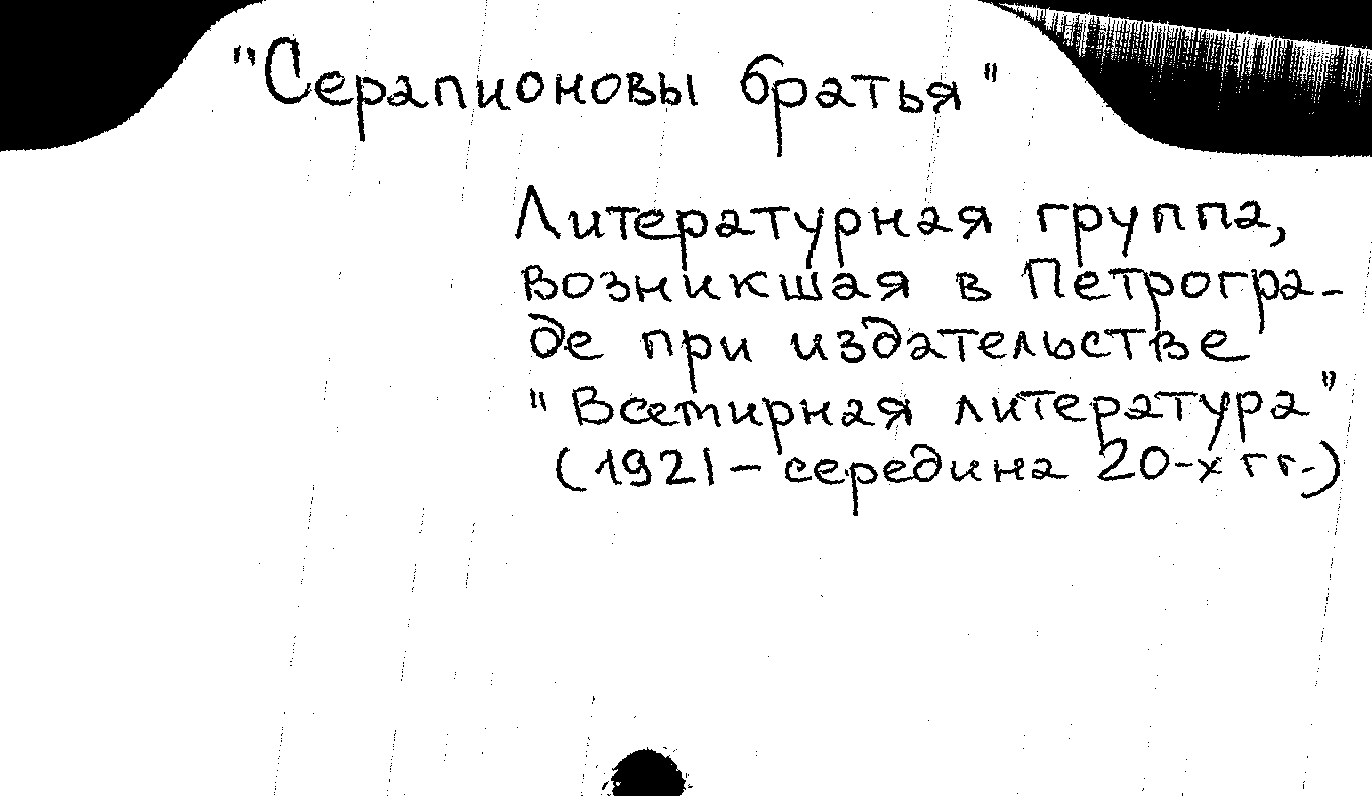 "Серапионовы братья"
Литературная группа,
возникшая в Петрогра-
де при издательстве
"Всемирная литература"
(1921 – середина 20-х гг.)